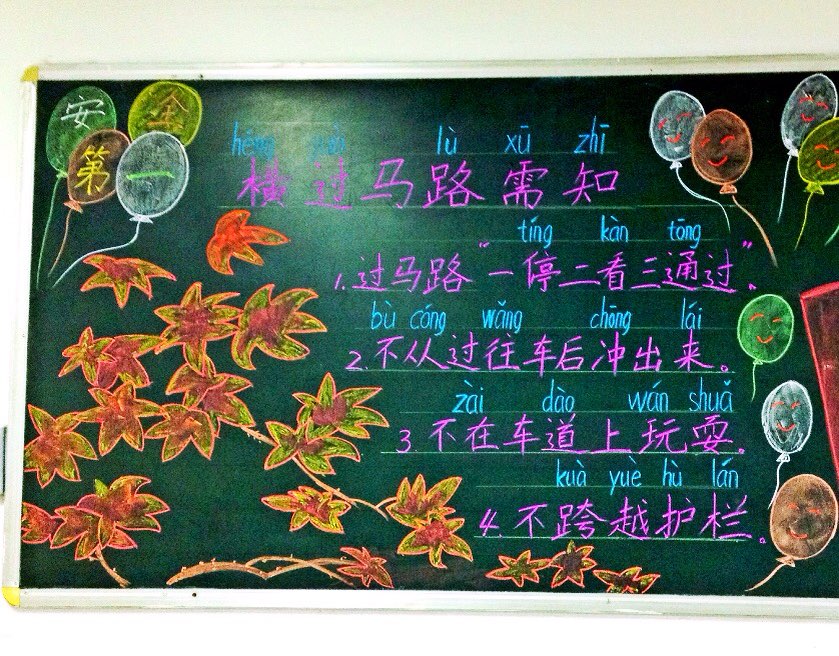 安全
第一
héng guò lù xū zhī
横过马路需知
tíng kàn tōng
1.过马路“一停二看三通过”。
bù cóng wǎng chōng lái
2.不从过往车后冲出来。
zài dào wán shuǎ
3.不在车道上玩耍。
kuà yuè hù lán
4.不跨越护栏。